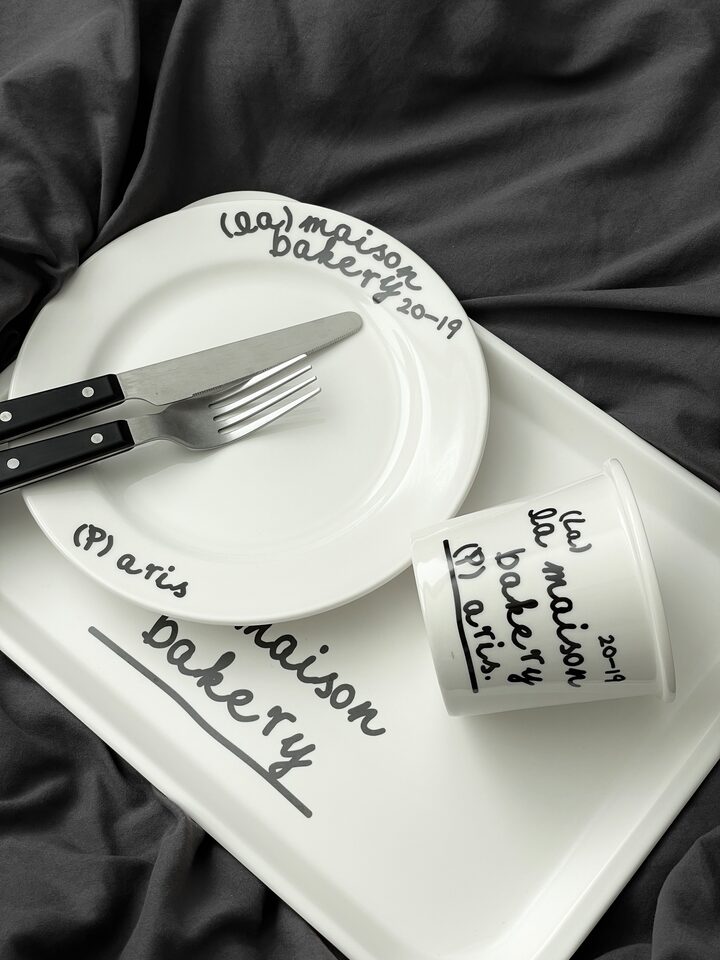 (la) maison
bakery
20-19
(P) aris
maison
bakery
(La)
la maison
20-19
bakery
(P) aris.